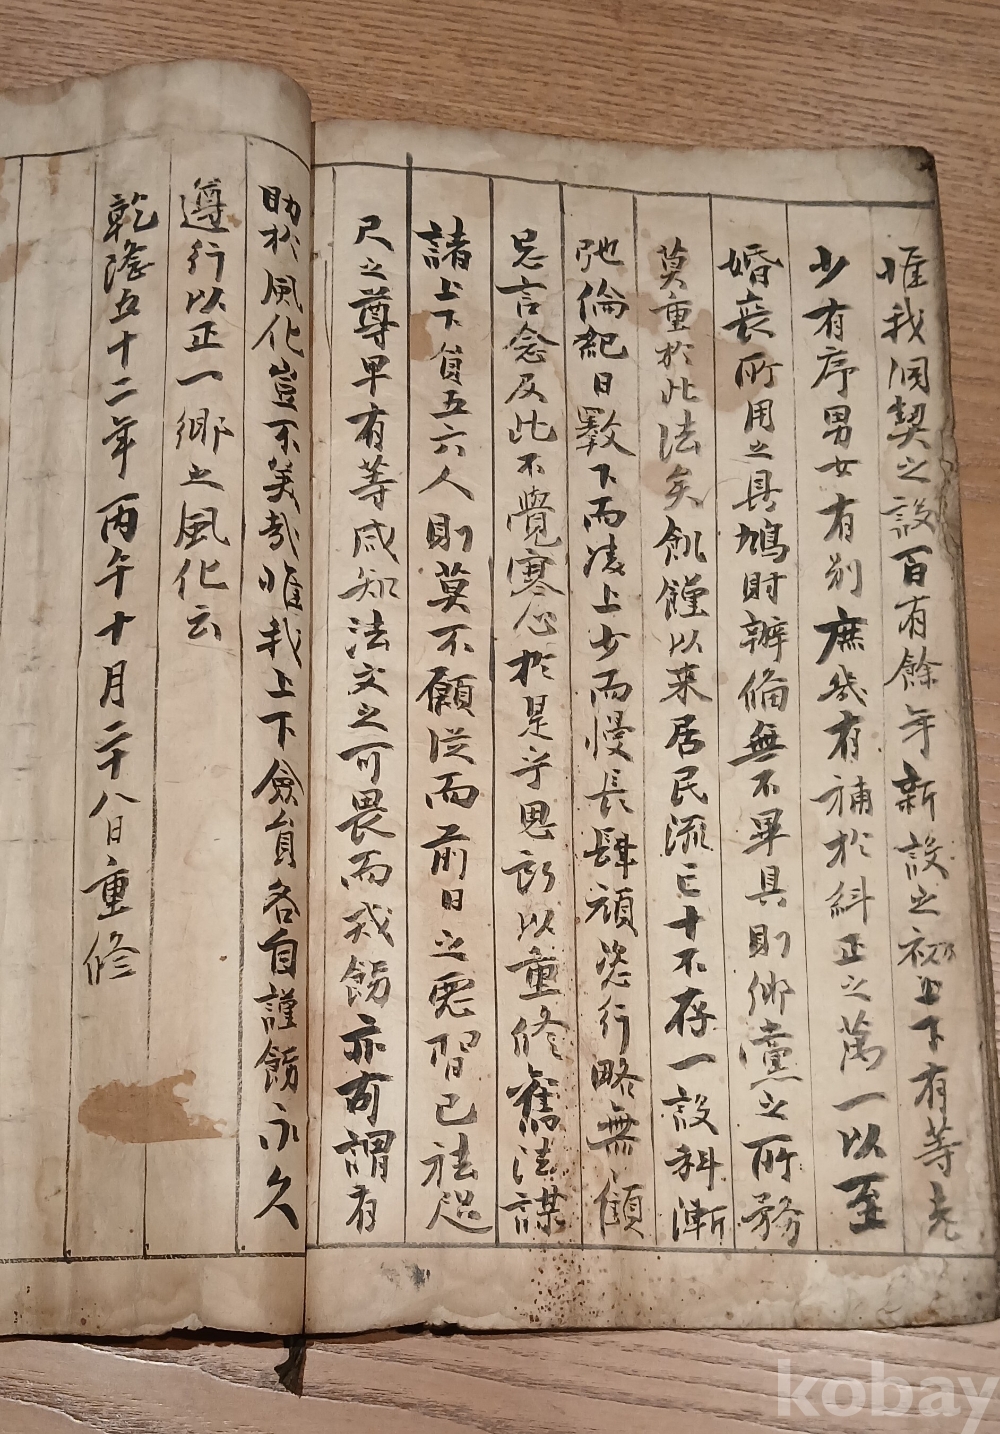 惟我洞契之設百有餘年新設之初上下有等老
少有序男女有別庶幾有補於糾正之萬一以至
婚喪所用之具鳩財辦備無不畢具則鄉黨之所務
莫重於此法矣飢饉以來居民流亡十不存一設科漸
弛倫紀日斁下而凌上少而慢長肆頑恣行略無顧
忌言念及此不覺寒心於是乎思所以重修舊法謀
諸上下員五六人則莫不願從而前日之惡習已祛咫
尺之尊卑有等咸知法文之可畏而戒飭亦可謂有
助於風化豈不美哉惟我上下僉員各自謹飭永久
遵行以正一鄉之風化云
乾隆五十二年丙午十月二十八日重修
kobay